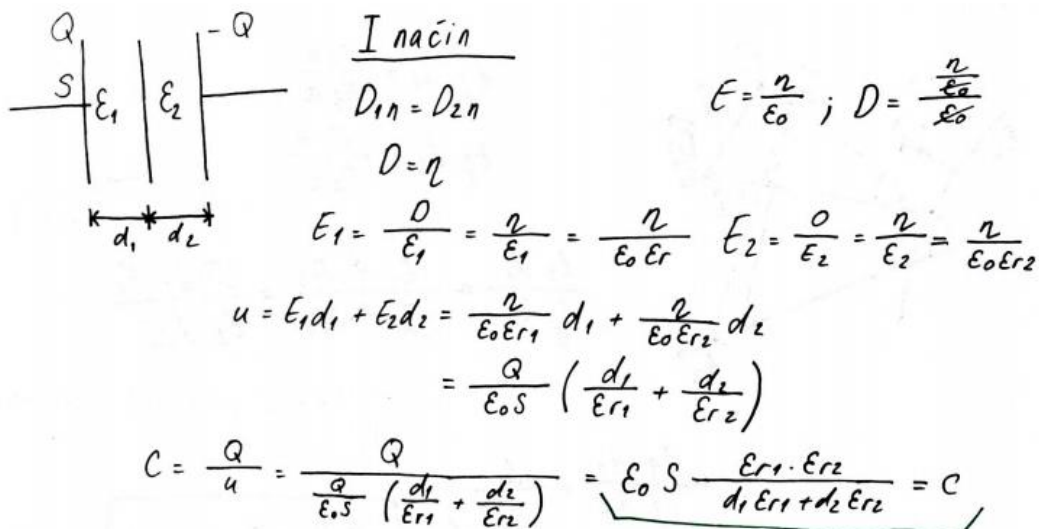 Q -Q
S ε₁ ε₂
d₁ d₂
I način
D₁n = D₂n
D = η
E = η/ε₀ ; D = (η/ε₀)/ε₀
E₁ = D/ε₁ = η/ε₁ = η/(ε₀ εr) E₂ = D/E₂ = η/ε₂ = η/(ε₀εr₂)
u = E₁d₁ + E₂d₂ = η/(ε₀εr₁) d₁ + η/(ε₀εr₂) d₂
= Q/(ε₀S) (d₁/εr₁ + d₂/εr₂)
C = Q/u = Q/(Q/(ε₀S) (d₁/εr₁ + d₂/εr₂)) = ε₀ S (εr₁ · εr₂)/(d₁ εr₁ + d₂ εr₂) = C